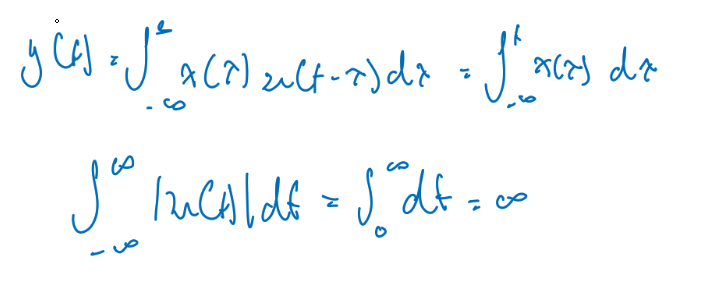 y(t) = ∫_{-∞}^{t} x(τ) u(t-τ) dτ = ∫_{-∞}^{t} x(τ) dτ
∫_{-∞}^{∞} |u(t)| dt = ∫_{0}^{∞} dt = ∞